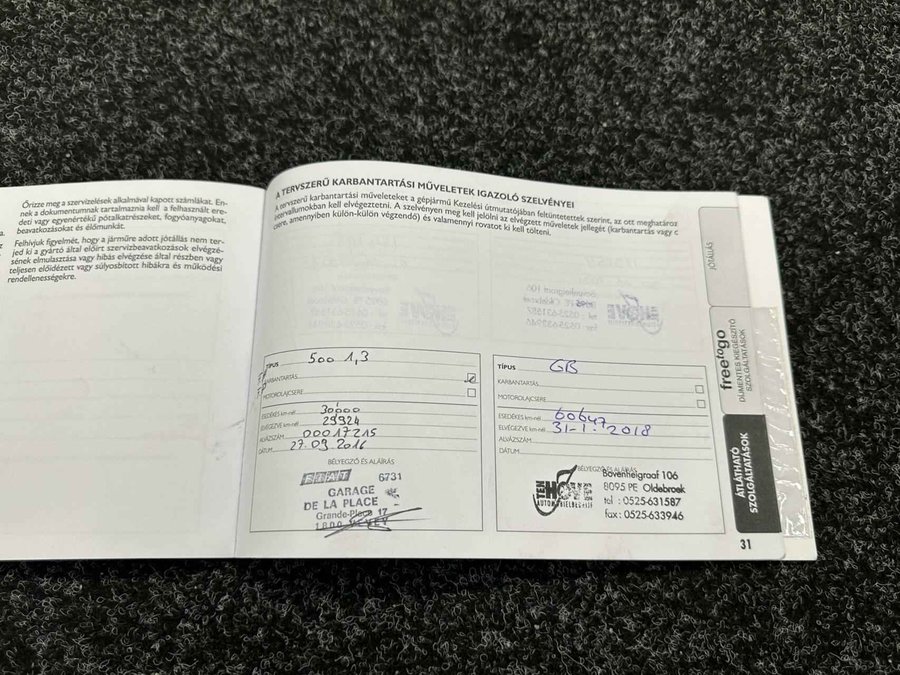 Őrizze meg a szervizelések alkalmával kapott számlákat. En-
nek a dokumentumnak tartalmaznia kell a felhasznált ere-
deti vagy egyenértékű pótalkatrészeket, fogyóanyagokat,
beavatkozásokat és élőmunkát.
Felhívjuk figyelmét, hogy a járműre adott jótállás nem ter-
jed ki a gyártó által előírt szervizbeavatkozások elvégzé-
sének elmulasztása vagy hibás elvégzése által részben vagy
teljesen előidézett vagy súlyosbított hibákra és működési
rendellenességekre.
A TERVSZERŰ KARBANTARTÁSI MŰVELETEK IGAZOLÓ SZELVÉNYEI
A tervszerű karbantartási műveleteket a gépjármű Kezelési útmutatójában feltüntetettek szerint, az ott meghatároz
intervallumokban kell elvégeztetni. A szelvényen meg kell jelölni az elvégzett műveletek jellegét (karbantartás vagy
csere, amennyiben külön-külön végzendő) és valamennyi rovatot ki kell tölteni.
TÍPUS 500 1,3
KARBANTARTÁS
MOTOROLAJCSERE
ESEDÉKES km-nél 30000
ELVÉGEZVE km-nél 29924
ALVÁZSZÁM 00017215
DÁTUM 27.09.2016
BÉLYEGZŐ ÉS ALÁÍRÁS
FIAT 6731
GARAGE
DE LA PLACE
Grande-Place 17
1800 VEVEY
TÍPUS GB
KARBANTARTÁS
MOTOROLAJCSERE
ESEDÉKES km-nél 60647
ELVÉGEZVE km-nél 31-1-2018
ALVÁZSZÁM
DÁTUM
BÉLYEGZŐ ÉS ALÁÍRÁS
TEN HOVE
AUTOMOBIELBEDRIJF
Bovenheigraaf 106
8095 PE Oldebroek
tel : 0525-631587
fax : 0525-633946
JÓTÁLLÁS
freetogo
DÍJMENTES KIEGÉSZÍTŐ
SZOLGÁLTATÁSOK
ÁTLÁTHATÓ
SZOLGÁLTATÁSOK
31